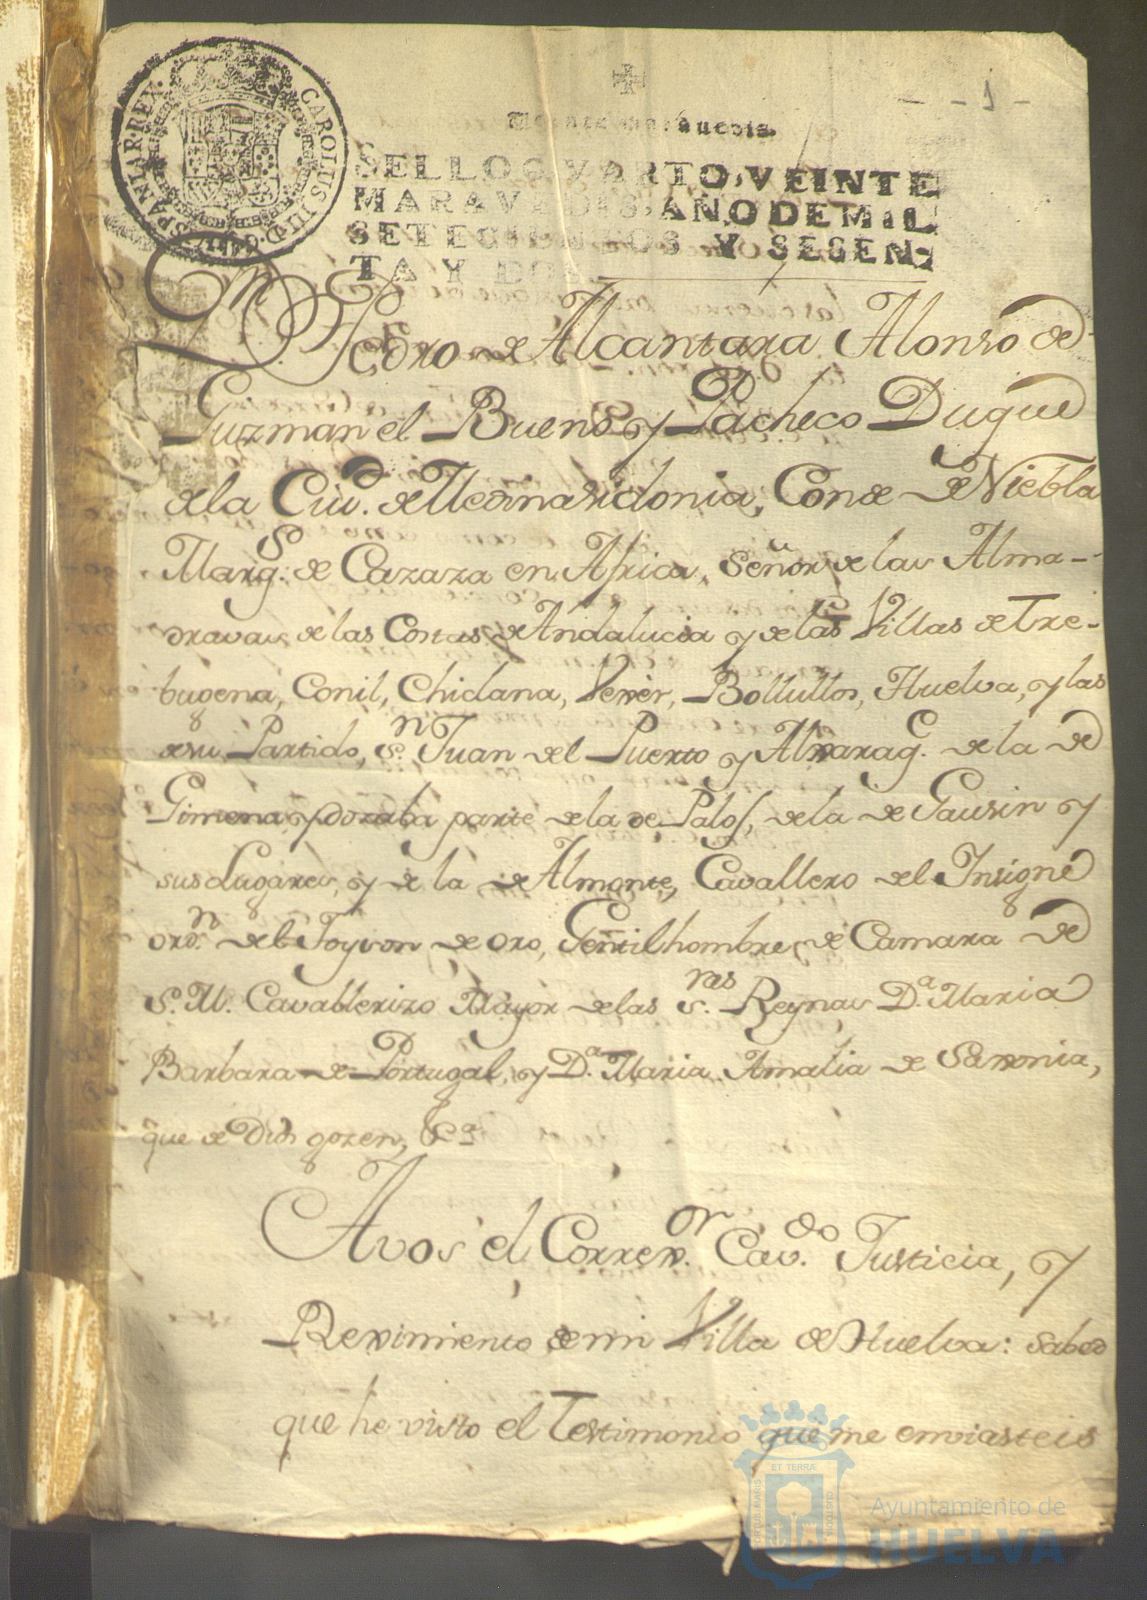 CAROLUS III D. G. HISPANIAR. REX.
- - 1 -
Veinte maravedis.
SELLO QVARTO, VEINTE
MARAVEDIS, AÑO DE MIL
SETECIENTOS Y SESEN-
TA Y DOS
Dn Pedro de Alcantara Alonso de
Guzman el Bueno, y Pacheco Duque
de la Ciud. de Medinasidonia, Conde de Niebla
Marqs. de Cazaza en Africa, Señor de las Alma-
dravas de las Costas de Andalucia y de las Villas de Tre-
bugena, Conil, Chiclana, Vexèr, Bollullos, Huelva, y las
de su Partido, Sn. Juan del Puerto y Almarag. de la de
Gimena, y dozaba parte de la de Palos, de la de Gausin y
sus Lugares, y de la de Almonte, Cavallero del Insigne
ordn. del Toyson de oro, Gentilhombre de Camara de
S. M. Cavallerizo Mayor de las Sras. Reynas Da. Maria
Barbara de Portugal, y Da. Maria Amalia de Saxonia,
que de Dios gozen, &a
A vos el Corregor. Cavdo. Justicia, y
Regimiento de mi Villa de Huelva: sabed
que he visto el Testimonio que me enviasteis
PORTUS MARIS
ET TERRÆ
CUSTODIA
Ayuntamiento de
HUELVA